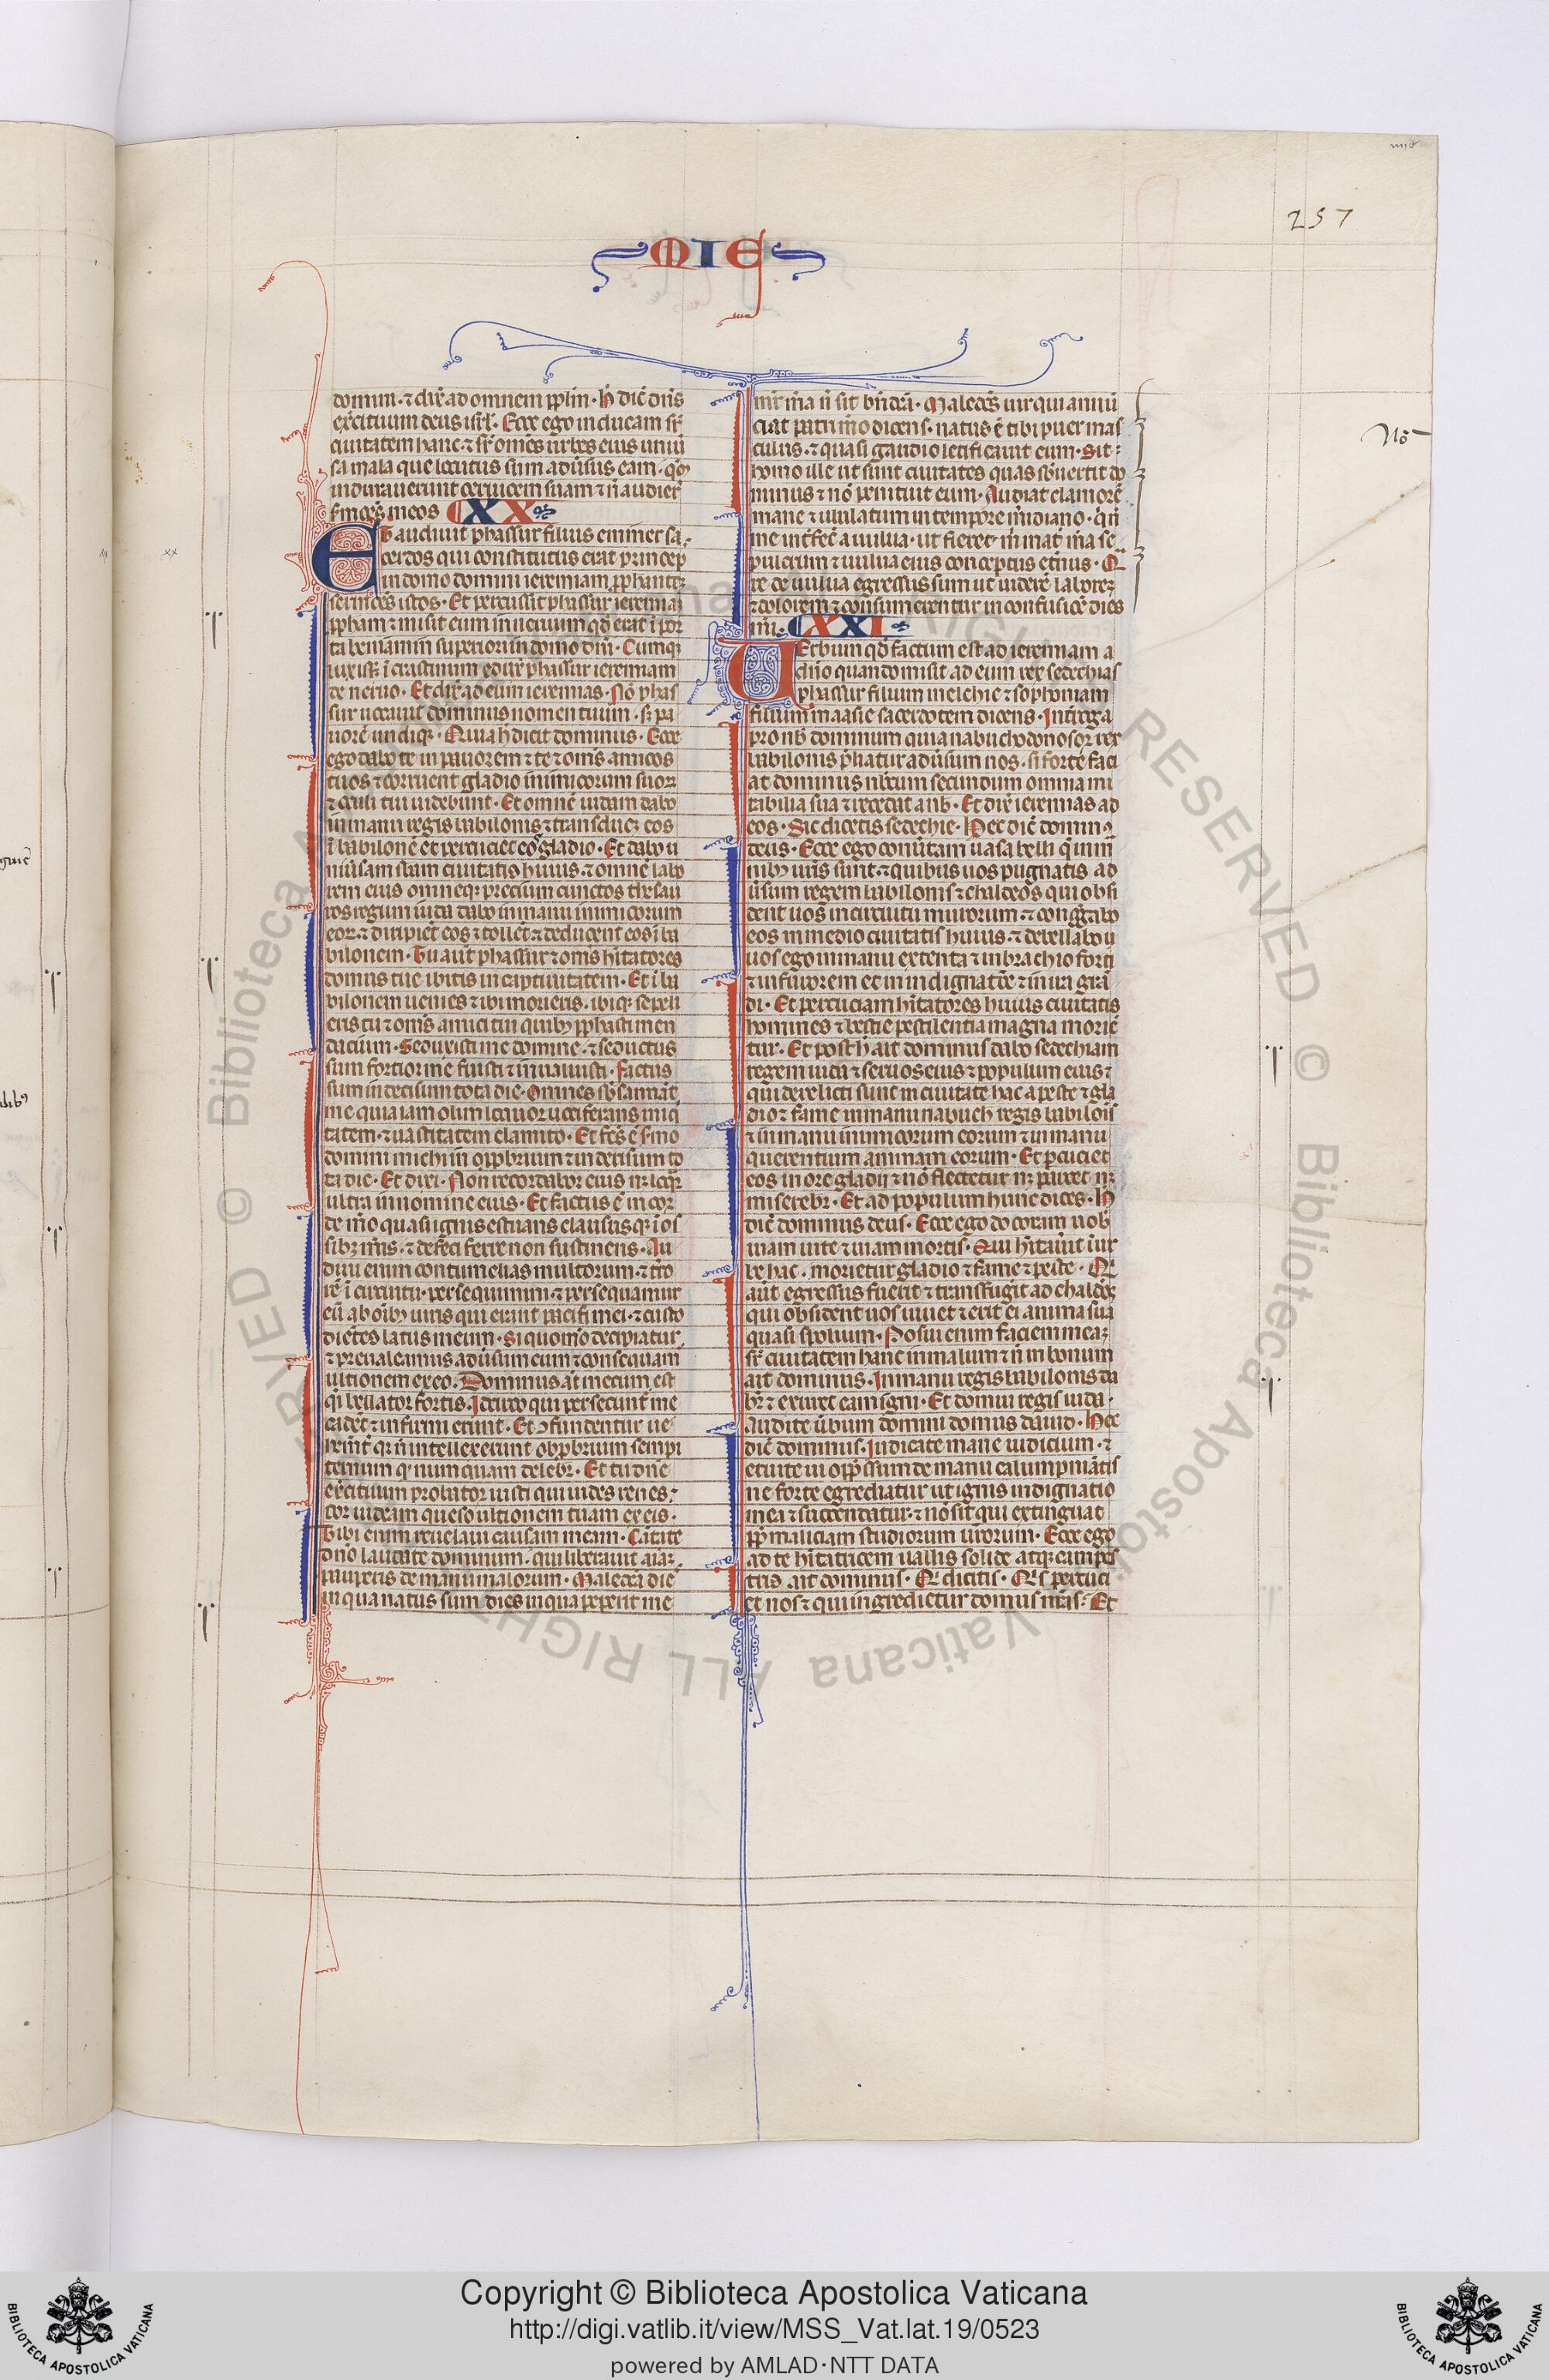 257
MIE
domini · ⁊ dix̄ ad omnem pp̄lm · h̄ dic̄ dn̄s
exc̄ituum deus isrl̄ · Ecce ego inducam sr̄
ciuitatem hanc ⁊ sr̄ om̄s urbes eius uniu̾
sa mala que locutus sum adu̾sus eam · qm̄
indurauerunt ceruicem suam ⁊ n̄ audier̄
s̾mōes meos XX
Et audiuit phassur filius emmer sa
cerdos qui constitutus erat princep
in domo domini ieremiam pp̄hantē
sermōes istos · Et percussit phassur ieremiaʒ
pp̄ham ⁊ misit eum in neruum qd̄ erat ī por
ta beniamin superiori in domo dn̄i · Cumqʒ
luxissʒ ī crastinum eduxͥ phassur ieremiam
de neruo · Et dix̄ ad eum ieremias · Nō phas
sur uocauit dominus nomen tuum · sʒ pa
uorē undiqʒ · Quia h̄ dicit dominus · Ecce
ego dabo te in pauorem ⁊ te ⁊ om̄s amicos
tuos ⁊ corruent gladio inimicorum suoꝝ
⁊ oculi tui uidebunt · Et omnē iudam dabo
in manu regis babilonis ⁊ transducʒ eos
ī babilonē et percuciet eos gladio · Et dabo u
niu̾sam sbam ciuitatis huius ⁊ omnē labo
rem eius omneqʒ precium cunctos thesau
ros regum iuda dabo in manu inimicorum
eoꝝ ⁊ diripiēt eos ⁊ tollēt ⁊ deducent eos ī ba
bilonem · Tu aut̄ phassur ⁊ om̄s hītatores
domus tue ibitis in captiuitatem · Et ī ba
bilonem uenies ⁊ ibi morieris · ibiqʒ sepeli
eris tu ⁊ om̄s amici tui quibꝫ pp̄hasti men
dacium · Seduxisti me domine · ⁊ seductus
sum fortior me fuisti ⁊ inualuisti · factus
sum in derisum tota die · Omnes sb̄sannāt
me quia iam olim loquor uociferans iniq̄
tatem · ⁊ uastitatem clamito · Et fcs̄ ē s̾mo
domini michi in opp̄brium ⁊ in derisum to
ta die · Et dixi · Non recordabor eius nʒ loq̄r
ultra in nomine eius · Et factus ē in cor
de mō quasi ignis estuans claususqʒ ī os
sibʒ meis · ⁊ defeci ferre non sustinens · Au
diui enim contumelias multorum · ⁊ t̄ro
rē ī circuitu · persequimini · ⁊ persequamur
eū ab oībꝫ uiris qui erant pacifi mei · ⁊ custo
dientes latus meum · Si quomō decipiatur
⁊ preualeamus adu̾sum eum ⁊ consequam̄
ultionem ex eo · Dominus aūt mecum est
q̄i bellator fortis · Idcirco qui persecunt̄ me
cadēt ⁊ infirmi erunt · Et ꝯfundentur ue
hemēt̄ qʒ n̄ intellexerunt obp̄brium sempi
ternum q̄ nunquam delebr̄ · Et tu dn̄e
exc̄ituum probator iusti qui uides renes ⁊
cor uideam queso ultionem tuam ex eis ·
Tibi enim reuelaui causam meam · Cantate
dn̄o laudate dominum · qui liberauit aīaʒ
pauperis de manu malorum · Maledc̄a dies
in qua natus sum dies in qua peperit me
mr̄ mā n̄ sit bn̄dc̄a · Maledc̄s uir qui annū
ciat patri mō dicens · natus ē tibi puer mas
culus · ⁊ quasi gaudio letificauit eum · Sit
homo ille ut sunt ciuitates quas sb̄uertit do
minus ⁊ nō penituit eum · Audiat clamorē
mane ⁊ ululatum in tempore m̾idiano · qͥ n̄
me int̾fec̄ a uulua · ut fieret m̄ mat̄ mā se
pulcrum ⁊ uulua eius conceptus et̾nus · Q̄
re de uulua egressus sum ut uiderē laborē
⁊ dolorem ⁊ consumerentur in confusiōe dies
mͥ · XXI
No
Uerbum qd̄ factum est ad ieremiam a
dn̄o quando misit ad eum rex sedechias
phassur filium melchie ⁊ sophoniam
filium maasie sacerdotem dicens · Int̾roga
pro nb̄ dominum quia nabuchodonosor rex
babilonis p̄liatur adu̾sum nos · si forte faci
at dominus nb̄cum secundum omnia mi
rabilia sua ⁊ recedat a nb̄ · Et dix̄ ieremias ad
eos · Sic dicetis sedechie · Hec dic̄ dominꝰ
deus · Ecce ego conu̾tam uasa belli q̄ in m̄
nibꝫ ur̄is sunt · ⁊ quibus uos pugnatis ad
u̾sum regem babilonis ⁊ chaldeos qui obsi
dent uos in circuitu murorum · ⁊ congr̄gabo
eos in medio ciuitatis huius · ⁊ debellabo u
uos ego in manu extenta ⁊ in brachio forti
⁊ in furorem et in indignatiōe ⁊ in ira grā
di · Et percuciam hītatores huius ciuitatis
homines ⁊ bestie pestilentia magna morie
tur · Et post h̄ ait dominus dabo sedechiam
regem iuda ⁊ seruos eius ⁊ populum eius ⁊
qui derelicti sunt in ciuitate hac a peste ⁊ gla
dio ⁊ fame in manu nabuch regis babilois̄
⁊ in manu inimicorum eorum ⁊ in manu
querentium animam eorum · Et p̄cuciet
eos in ore gladii ⁊ nō flectetur nʒ parcet nʒ
miserebr̄ · Et ad populum hunc dices · h̄
dic̄ dominus deus · Ecce ego do coram uob̄
uiam uite ⁊ uiam mortis · Qui hītau̾it ī ur
be hac · morietur gladio ⁊ fame ⁊ peste · Qͥ
aūt egressus fuerit ⁊ transfugit ad chaldeos
qui obsident uos uiuet ⁊ erit ei anima sua
quasi spolium · Posui enim faciem meaʒ
sr̄ ciuitatem hanc in malum ⁊ n̄ in bonum
ait dominus · In manu regis babilonis da
br̄ ⁊ exuret eam igni · Et domui regis iuda ·
Audite u̾bum domini domus dauid · Hec
dic̄ dominus · Iudicate mane iudicium · ⁊
eruite ui opp̄ssum de manu calumpniātis
ne forte egrediatur ut ignis indignatio
mea ⁊ succendatur · ⁊ nō sit qui extinguat
pp̄ maliciam studiorum ur̄orum · Ecce ego
ad te hītatricem uallis solide atqʒ campes
tris ait dominus · Qͥ dicitis · Qͥs percuci
et nos ⁊ qui ingredietur domus nr̄as · Et
Copyright © Biblioteca Apostolica Vaticana
http://digi.vatlib.it/view/MSS_Vat.lat.19/0523
powered by AMLAD·NTT DATA